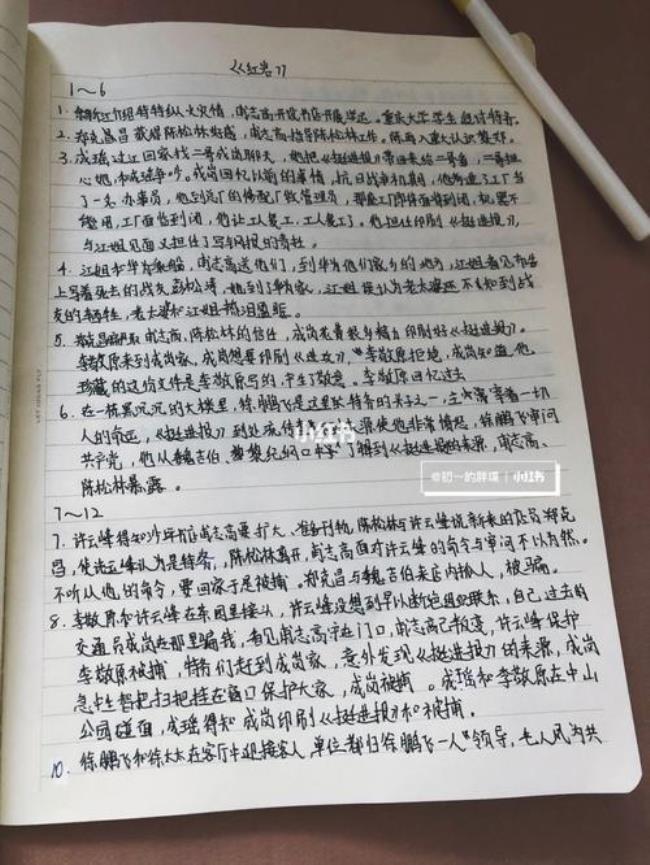 《红岩》
1～6
1. 余新江介绍特特纵火灾情，甫志高开设书店开展学运。重庆大学学生
2. 郑克昌 获得陈松林好感，甫志高指导陈松林工作。陈再入重大认识
3. 成瑶过江回家找二哥成岗聊天，她把《挺进报》带回来给二哥看，二哥担
心她，和成瑶争吵。成岗回忆以前的事情，抗日战争初期，他考进了工厂当
了一名办事员，他到兵厂的修配厂做管理员，那座工厂即将面临到闭，机器不
能用，工厂面临到闭，他让工人复工，工人复工了。他担任印刷《挺进报》，
与江姐见面又担任了写钢板的责任。
4. 江姐和华为乘船，甫志高送他们，到华为他们家乡的地方，江姐看见布告
上写着死去的战友彭松涛，她到了华为家，江姐误认为老太婆还不知到战
友的牺牲，老太婆和江姐热泪盈眶。
5. 郑克昌骗取甫志高，陈松林的信任，成岗花费很多精力印刷好《挺进报》。
李敬原来到成岗家，成岗想要印刷《进攻》，李敬原拒绝，成岗知道，他
珍藏的这份文件是李敬原写的，产生了敬意。李敬原回忆过去
6. 在一栋黑沉沉的大楼里，徐鹏飞是这里的特务的头子之一，主宰着一切
人的命运，《挺进报》到处流传 来源使他非常愤怒，徐鹏飞审问
共产党，他从魏吉伯、黎纪纲口中 了解到《挺进报》的来源，甫志高、
陈松林暴露。
7～12
7. 许云峰得知沙坪书店甫志高要扩大、准备刊物，陈松林与许云峰说新来的店员郑克
昌，使许云峰认为是特务，陈松林离开，甫志高面对许云峰的命令与审问不以为然。
不听从他的命令，要回家于是被捕。郑克昌与魏吉伯来店内抓人，被骗。
8. 李敬原和许云峰在东园里接头，许云峰没想到早以断绝 联系，自己过去的
交通员成岗在那里 我，看见甫志高守在门口，甫志高已叛变，许云峰保护
李敬原被捕，特务们赶到成岗家，意外发现《挺进报》的来源，成岗
急中生智把扫把挂在窗口保护大家，成岗被捕。成瑶和李敬原在中山
公园碰面，成瑶得知成岗印刷《挺进报》和被捕。
10. 徐鹏飞和徐太太在客厅中迎接客人，单位都归徐鹏飞一人"领导，毛人凤为共
小红书
@初一的胖 | 小红书